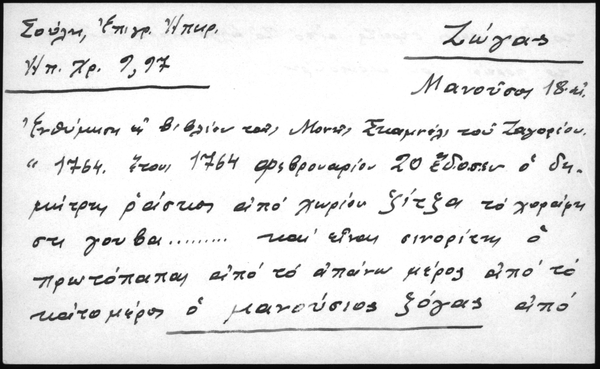 Σούλη, Ἐπιγρ. Ἠπειρ.
Ζώγας
Ἠπ. Χρ. 9, 97
Μανοῦσος 18 αἰ.
Ἐνθύμιση ἐκ βιβλίου τῆς Μονῆς Σκαμνέλι τοῦ Ζαγορίου.
" 1764. ἔτους 1764 φεβρουαρίου 20 ἔδοσεν ὁ δη-
μήτρης ράστος ἀπό χωρίον ζίτζα τό χοράφη
στη γουβα......... καί εἶναι σινορίτης ὁ
πρωτόπαπας ἀπό τό ἀπάνω μέρος ἀπό τό
κάτο μέρος ὁ μανούσιος ζόγας ἀπό